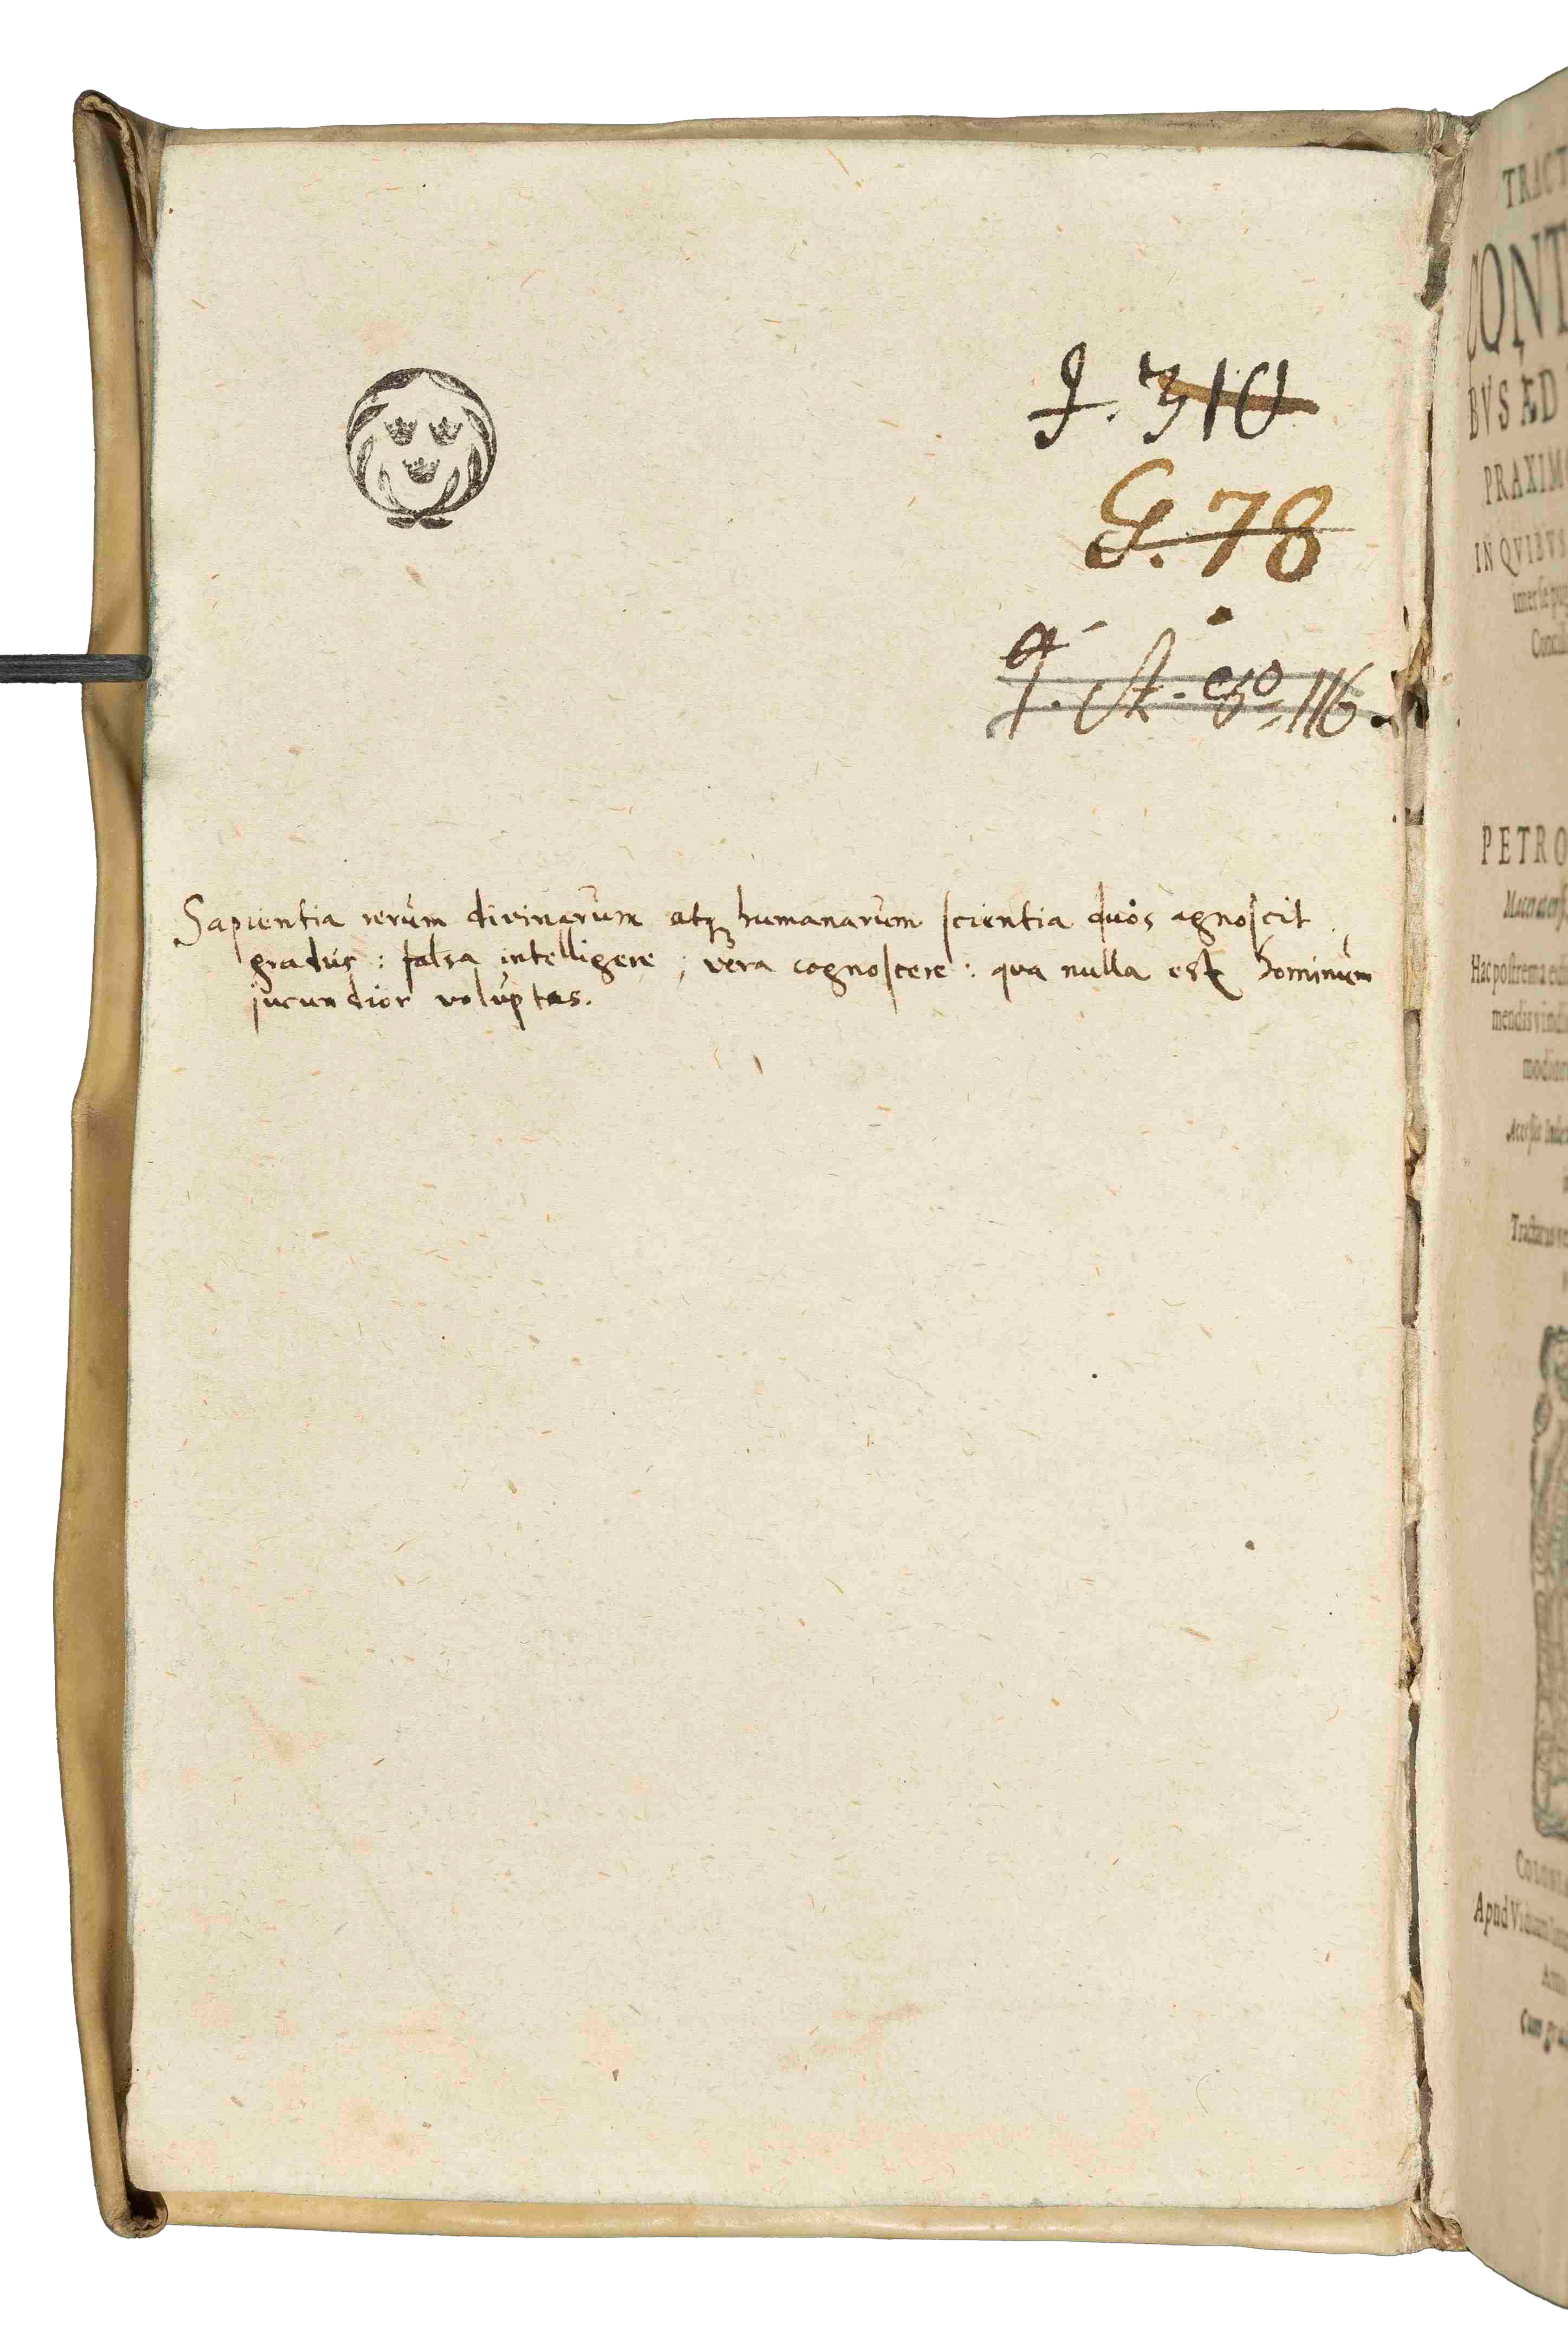 J. 310
G. 78
116
Sapientia rerum divinarum atq; humanarum scientia duos agnoscit
gradus: falsa intelligere; vera cognoscere: qua nulla est hominum
jucundior voluptas.
TRACT
CONT
BVS AD
PRAXIM
IN QVIBVS
inter se pug
PETRO
Hac postrema edi
mendis vindi
Tractatus
COLONI
Apud Viduam
Cum gra